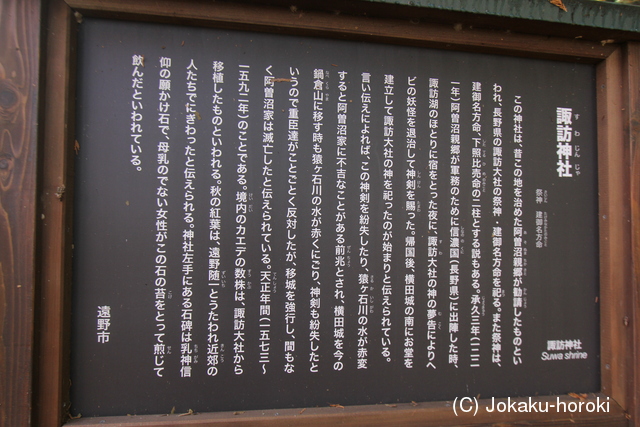 諏訪神社
すわじんじゃ
祭神　建御名方命
この神社は、昔この地を治めた阿曽沼親郷が勧請したものとい
われ、長野県の諏訪大社の祭神・建御名方命を祀る。また祭神は、
建御名方命、下照比売命の二柱とする説もある。承久三年（一二二
一年）阿曽沼親郷が軍務のために信濃国（長野県）に出陣した時、
諏訪湖のほとりに宿をとった夜に、諏訪大社の神の夢告によりヘ
ビの妖怪を退治して神剣を賜った。帰国後、横田城の南にお堂を
建立して諏訪大社の神を祀ったのが始まりと伝えられている。
言い伝えによれば、この神剣を紛失したり、猿ヶ石川の水が赤変
すると阿曽沼家に不吉なことがある前兆とされ、横田城を今の
鍋倉山に移す時も猿ヶ石川の水が赤くにごり、神剣も紛失したと
いうので重臣達がことごとく反対したが、移城を強行し、間もな
く阿曽沼家は滅亡したと伝えられている。天正年間（一五七三〜
一五九二年）のことである。境内のカエデの数株は、諏訪大社から
移植したものといわれる。秋の紅葉は、遠野随一とうたわれ近郊の
人たちでにぎわったと伝えられる。神社左手にある石碑は乳神信
仰の願かけ石で、母乳のでない女性がこの石の苔をとって煎じて
飲んだといわれている。
遠野市
諏訪神社
Suwa shrine
(C) Jokaku-horoki